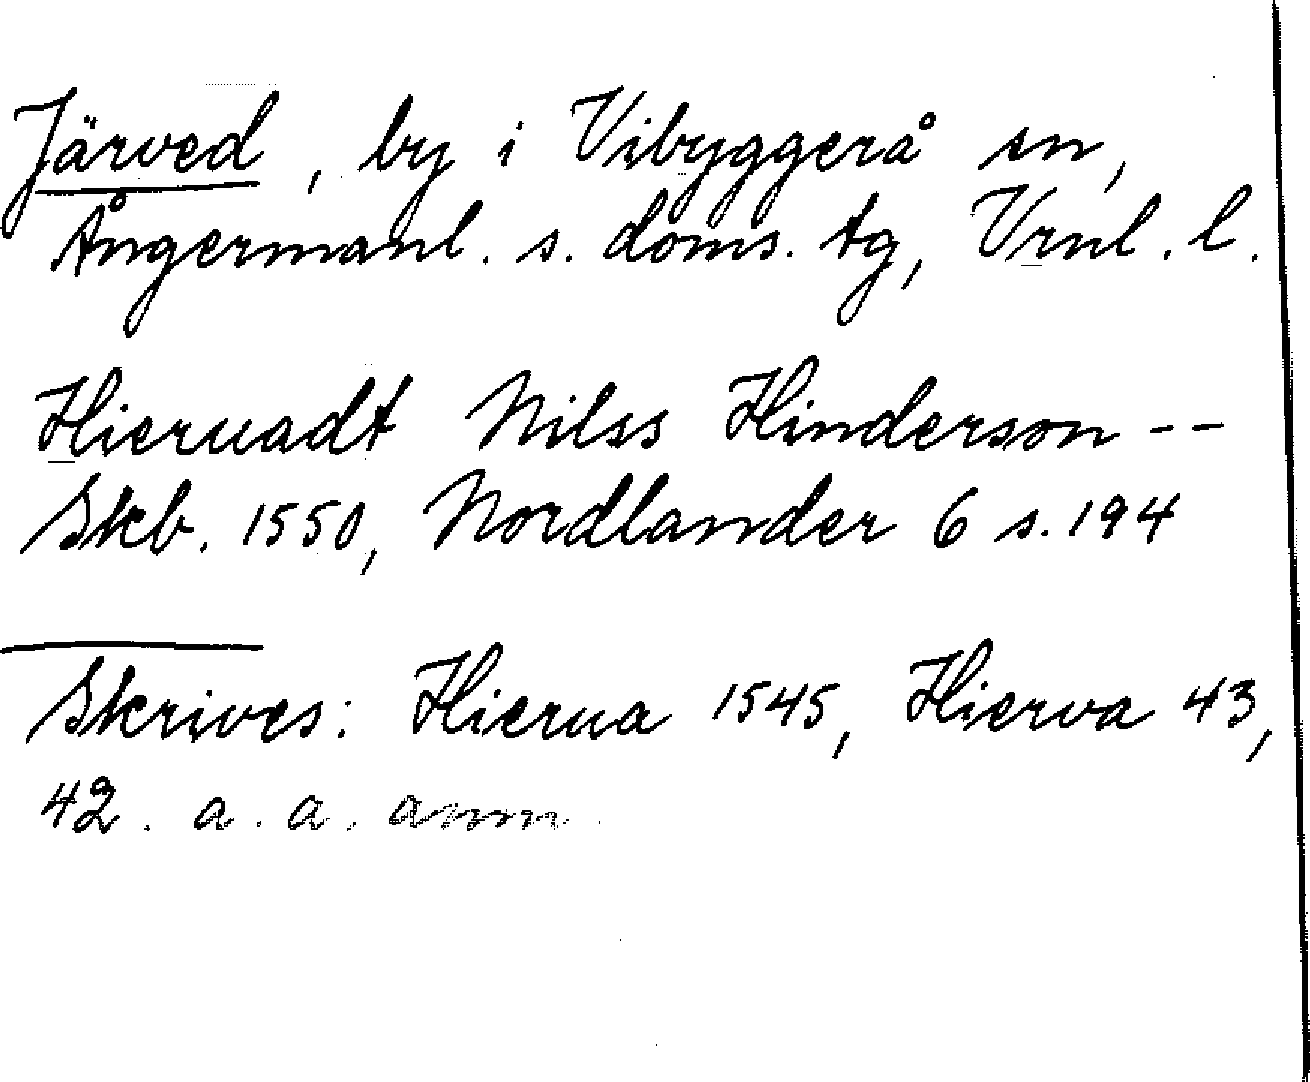 Järved, by i Vibyggerå sn,
Ångermanl. s. doms. tg, Vrnl. l.
Hieruadt Nilss Hinderson --
Skb. 1550, Nordlander 6 s. 194
Skrives: Hierua 1545, Hierva 43,
42. a. a. anm.